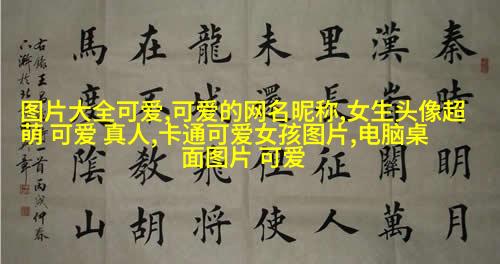 图片大全可爱,可爱的网名昵称,女生头像超
萌 可爱 真人,卡通可爱女孩图片,电脑桌
面图片 可爱
秦時明月
漢時關萬
里長征人
未還但使
龍城飛將
在不教胡
馬度陰山